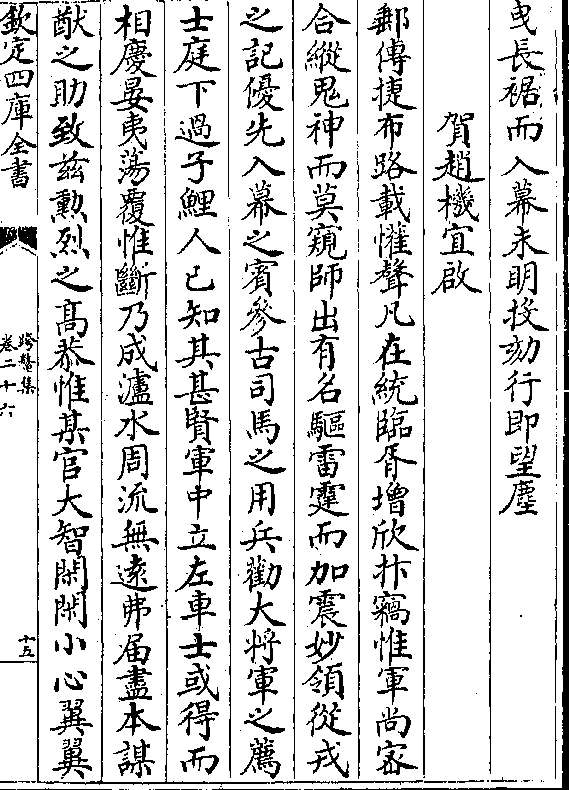 曵長裾而入幕未明投刻行即望塵
賀趙機宜啟
郵傳捷布路載懽聲凡在統臨胥增欣抃竊惟軍尚宻
合縱鬼神而莫窺師出有名驅雷霆而加震妙領從戎
之記優先入幕之賓參古司馬之用兵勸大將軍之薦
士庭下過子鯉人已知其甚賢軍中立左車士或得而
相慶晏夷蕩覆惟斷乃成瀘水周流無逺弗届盡本謀
猷之助致茲勲烈之髙恭惟某官大智閑閑小心翼翼
欽定四庫全書
跨鼇集
卷二十六
十五